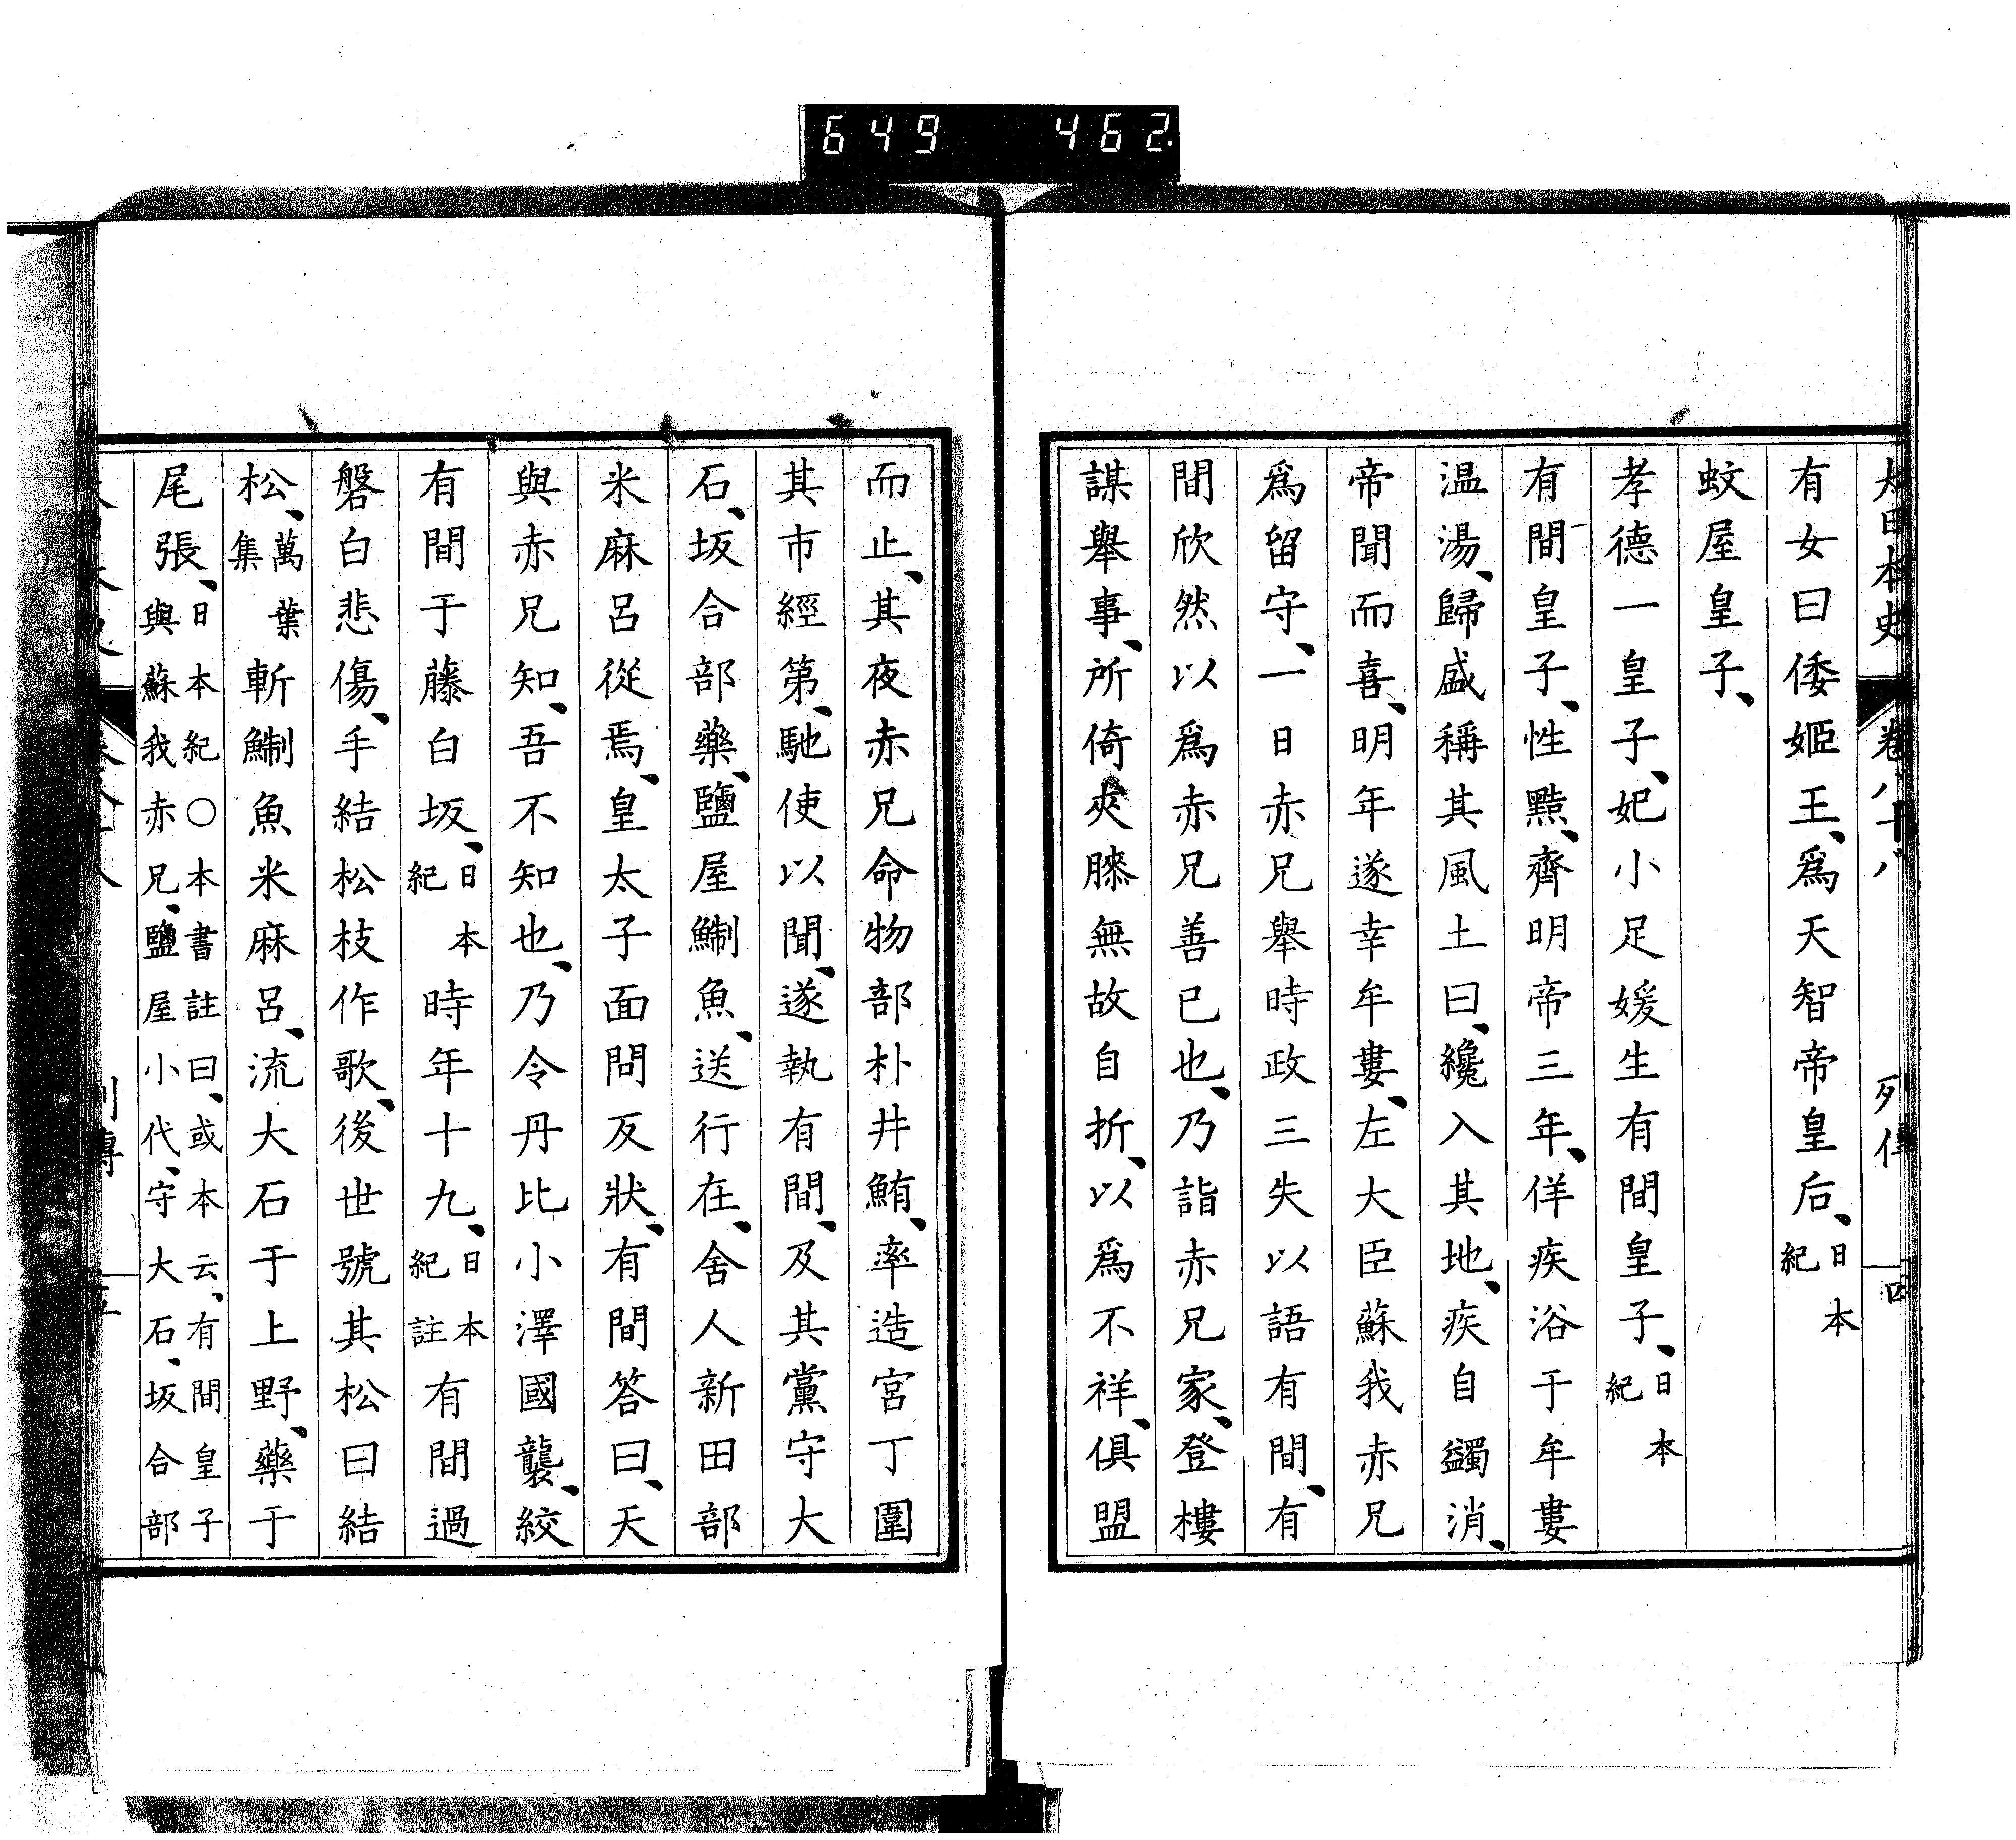 649 462
大日本史 卷八十八 列傳 四
有女曰倭姬王、爲天智帝皇后、日本紀
蚊屋皇子、
孝德一皇子、妃小足媛生有間皇子、日本紀
有間皇子、性黠、齊明帝三年、佯疾浴于牟婁
温湯、歸盛稱其風土曰、纔入其地、疾自蠲消、
帝聞而喜、明年遂幸牟婁、左大臣蘇我赤兄
爲留守、一日赤兄舉時政三失以語有間、有
間欣然以爲赤兄善已也、乃詣赤兄家、登樓
謀舉事、所倚夾膝無故自折、以爲不祥、俱盟
而止、其夜赤兄命物部朴井鮪、率造宮丁圍
其市經第、馳使以聞、遂執有間、及其黨守大
石、坂合部藥、鹽屋鯯魚、送行在、舍人新田部
米麻呂從焉、皇太子面問反狀、有間答曰、天
與赤兄知、吾不知也、乃令丹比小澤國襲、絞
有間于藤白坂、日本紀時年十九、日本紀註有間過
磐白悲傷、手結松枝作歌、後世號其松曰結
松、萬葉集斬鯯魚米麻呂、流大石于上野、藥于
尾張、日本紀○本書註曰、或本云、有間皇子與蘇我赤兄、鹽屋小代、守大石、坂合部